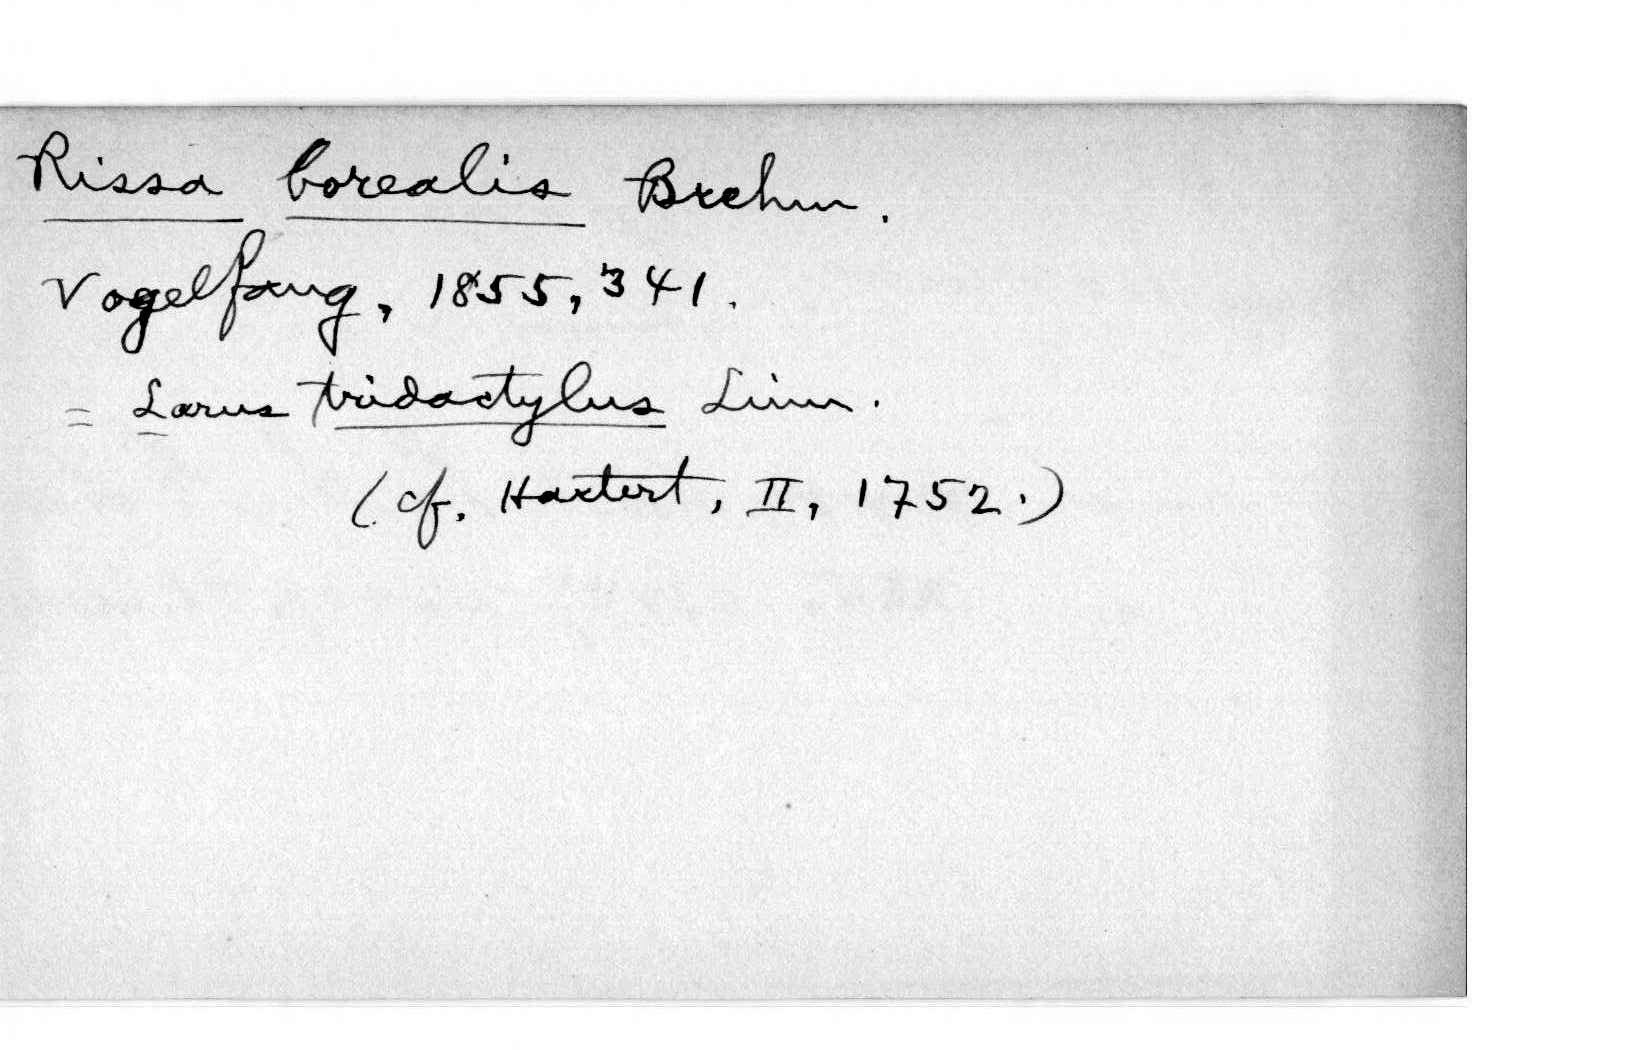 Rissa borealis Brehm.
Vogelfang, 1855, 341.
= Larus tridactylus Linn.
(cf. Hartert, II, 1752.)